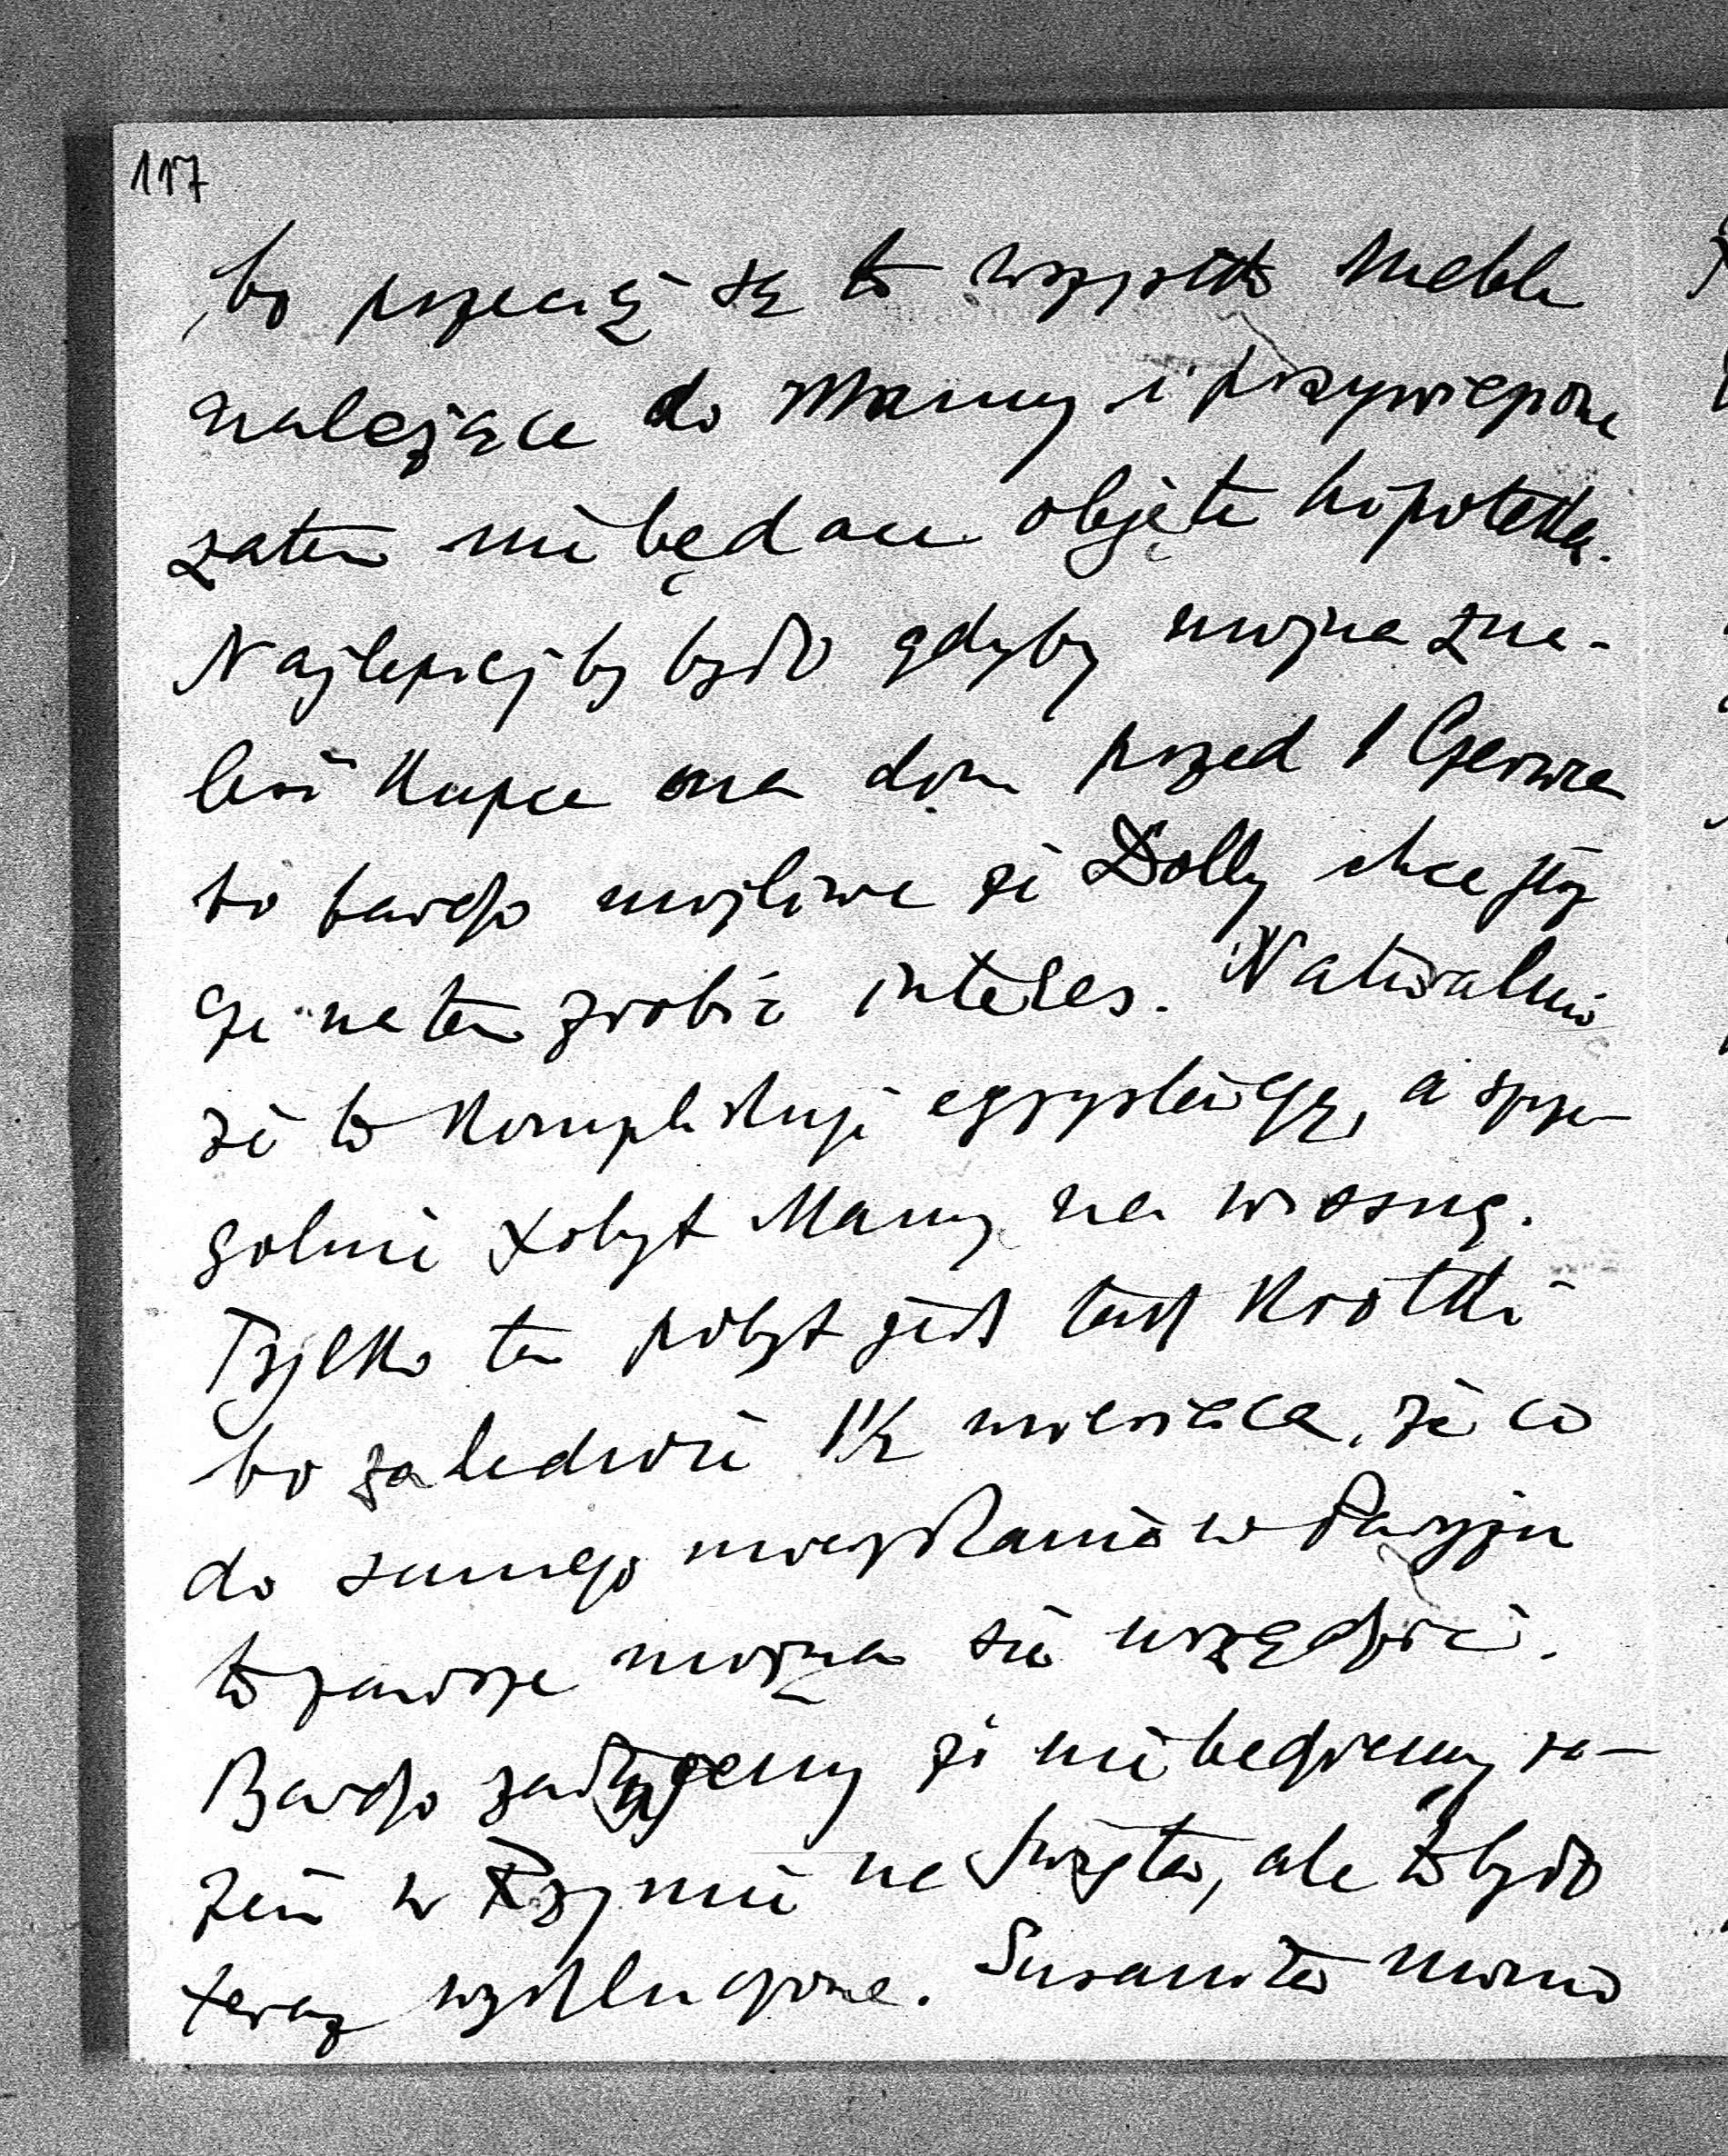 117
bo przecież są to wszystko meble
należące do Mamy i przywiezione
zatem nie będące objęte hipoteką.
Najlepiej by było gdyby można zna-
leść kupca na dom przed 1 Czerwca
bo bardzo możliwe że Dolly chce
że na tem zrobić interes. Naturalnie
że to komplikuje egzystencję, a szcze-
gólnie pobyt Mamy na wiosnę.
Tylko ten pobyt jest tak krótki
bo zaledwie 1½ miesiąca, że co
do samego mieszkania w Paryżu
to zawsze można się urządzić.
Bardzo żałujemy że nie będziemy ra-
zem w Rzymie na Święta, ale to było
teraz wykluczone. Susanita mimo